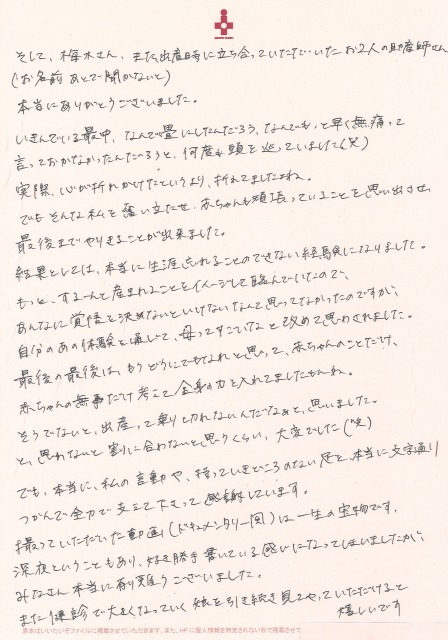 そして、梅木さん、また出産時に立ち会っていただいたお2人の助産師さん
(お名前あとで聞かないと)
本当にありがとうございました。
いきんでいる最中、なんで畳にしたんだろう、なんでもっと早く無痛って
言っておかなかったんだろうと、何度も頭を巡っていました(笑)
実際、心が折れかけたというより、折れてましたよね。
でもそんな私を奮い立たせ、赤ちゃんも頑張っていることを思い出させ
最後までやりきることが出来ました。
結果としては、本当に生涯忘れることのできない経験になりました。
もっと、するーんと産まれることをイメージして臨んでいたので、
あんなに覚悟を決めないといけないなんて思ってなかったのですが、
自分のあの体験を通じて、母ってすごいなと改めて思わされました。
最後の最後は、もうどうにでもなれと思って、赤ちゃんのことだけ、
赤ちゃんの無事だけ考えて全身の力を入れてましたもんね。
そうでないと、出産って乗り切れないんだなぁと、思いました。
と、思わないと割に合わないと思うくらい、大変でした(笑)
でも、本当に、私の言動や、持っていきどころのない足を、本当に文字通り
つかんで全力で支えて下さって感謝しています。
撮っていただいた動画(ドキュメンタリー図)は一生の宝物です。
深夜ということもあり、好き勝手書いている感じになってしまいましたが、
みなさん本当に有り難うございました。
また健診で大きくなっていく娘を引き続き見てやっていただけると
嬉しいです
原本はいいたいそファイルに掲載させていただきます。また、HPに個人情報を特定されない形で掲載させて